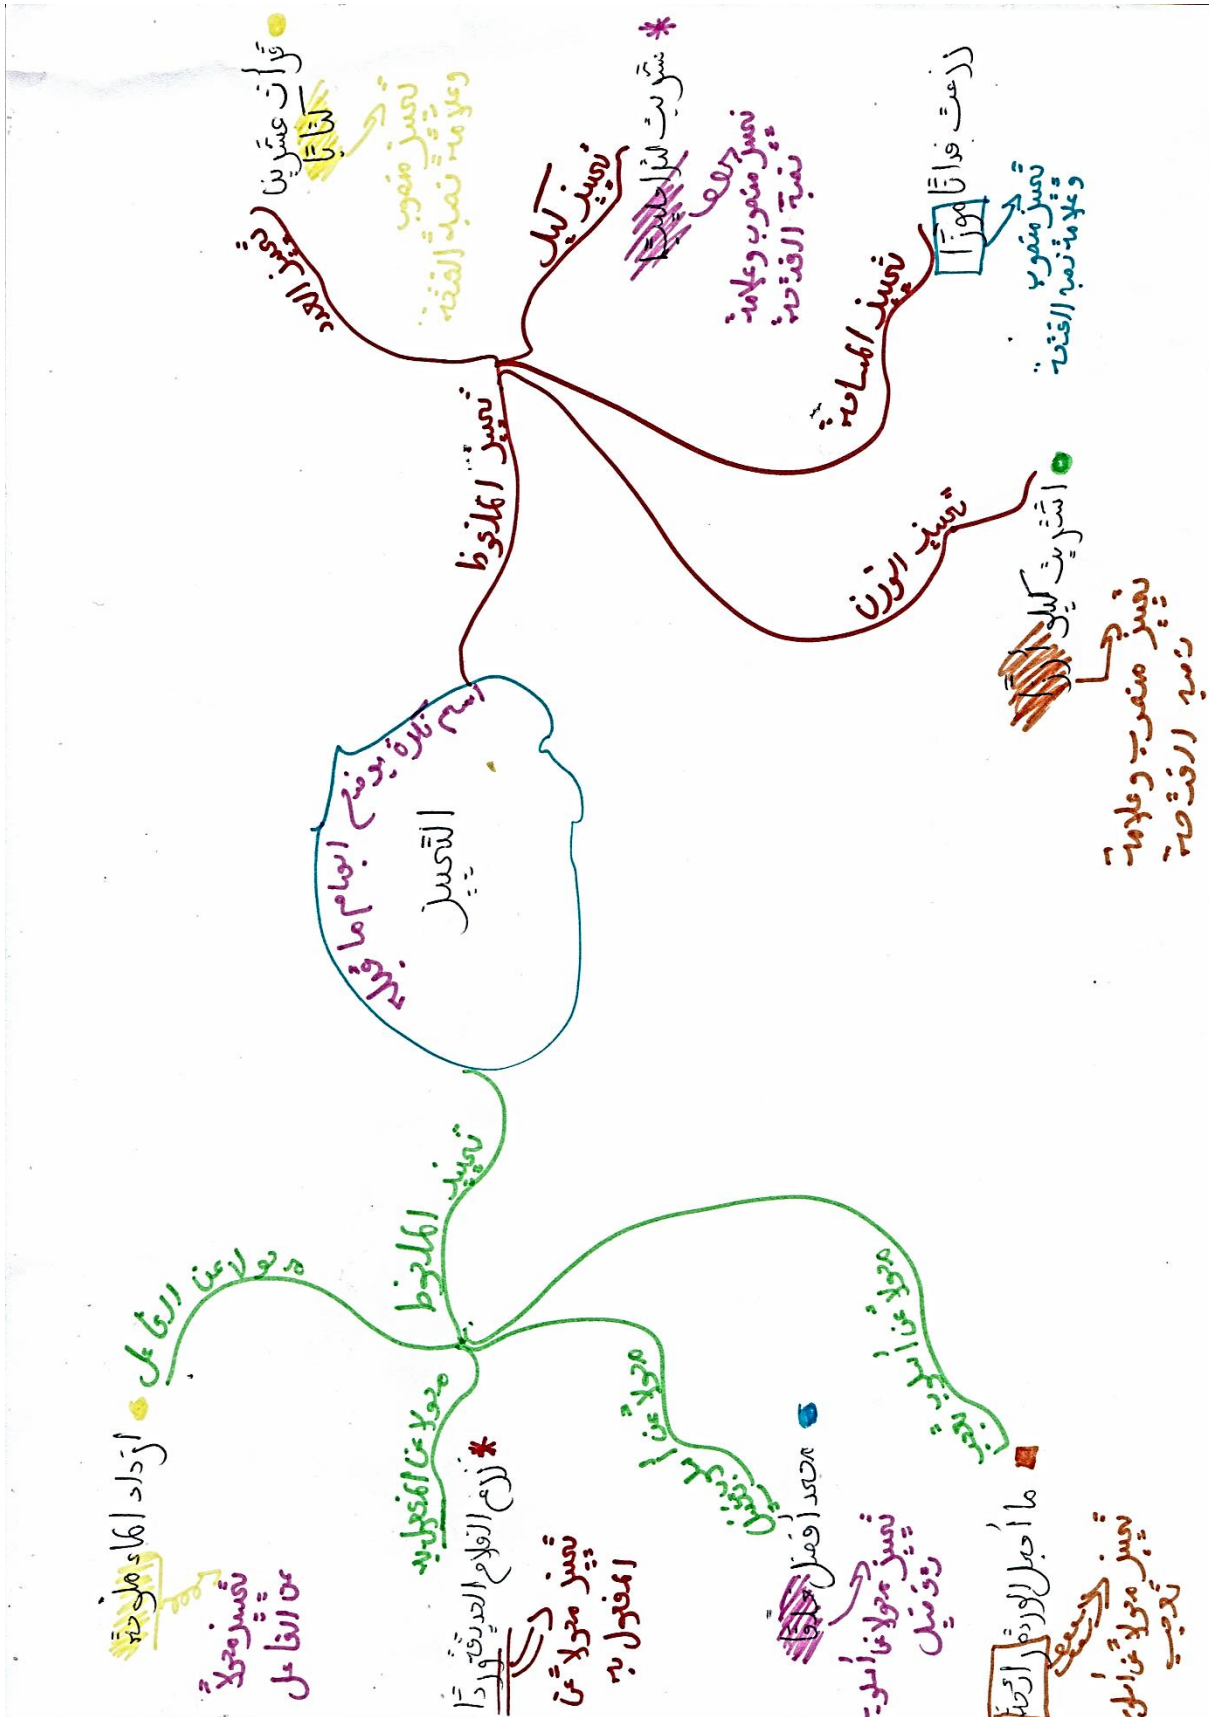 التمييز
اسم نكرة يوضح ابهام ما قبله
تمييز الملفوظ
تمييز العدد
قرأت عشرينا
كتابًا
تمييز منصوب
وعلامة نصبه الفتحة
تمييز كيل
شربت لترا حليبًا
تمييز منصوب وعلامة
نصبة الفتحة
تمييز المساحة
زرعت فدانًا موزًا
تمييز منصوب
وعلامة نصبه الفتحة
تمييز الوزن
اشتريت كيلو أرزًا
تمييز منصوب وعلامة
نصبه الفتحة
تمييز الملحوظ
محولا عن الفاعل
ازداد الماء ملوحة
تمييز محولاً
عن الفاعل
محولا عن المفعول به
زرع الفلاح الحديقة وردًا
تمييز محولاً عن
المفعول به
محولاً عن أسلوب
تفضيل
محمد أفضل خلقا
تمييز محولا عن أسلوب
تفضيل
محولا عن أسلوب تعجب
ما أجمل الوردة رائحة
تمييز محولاً عن أسلوب
تعجب